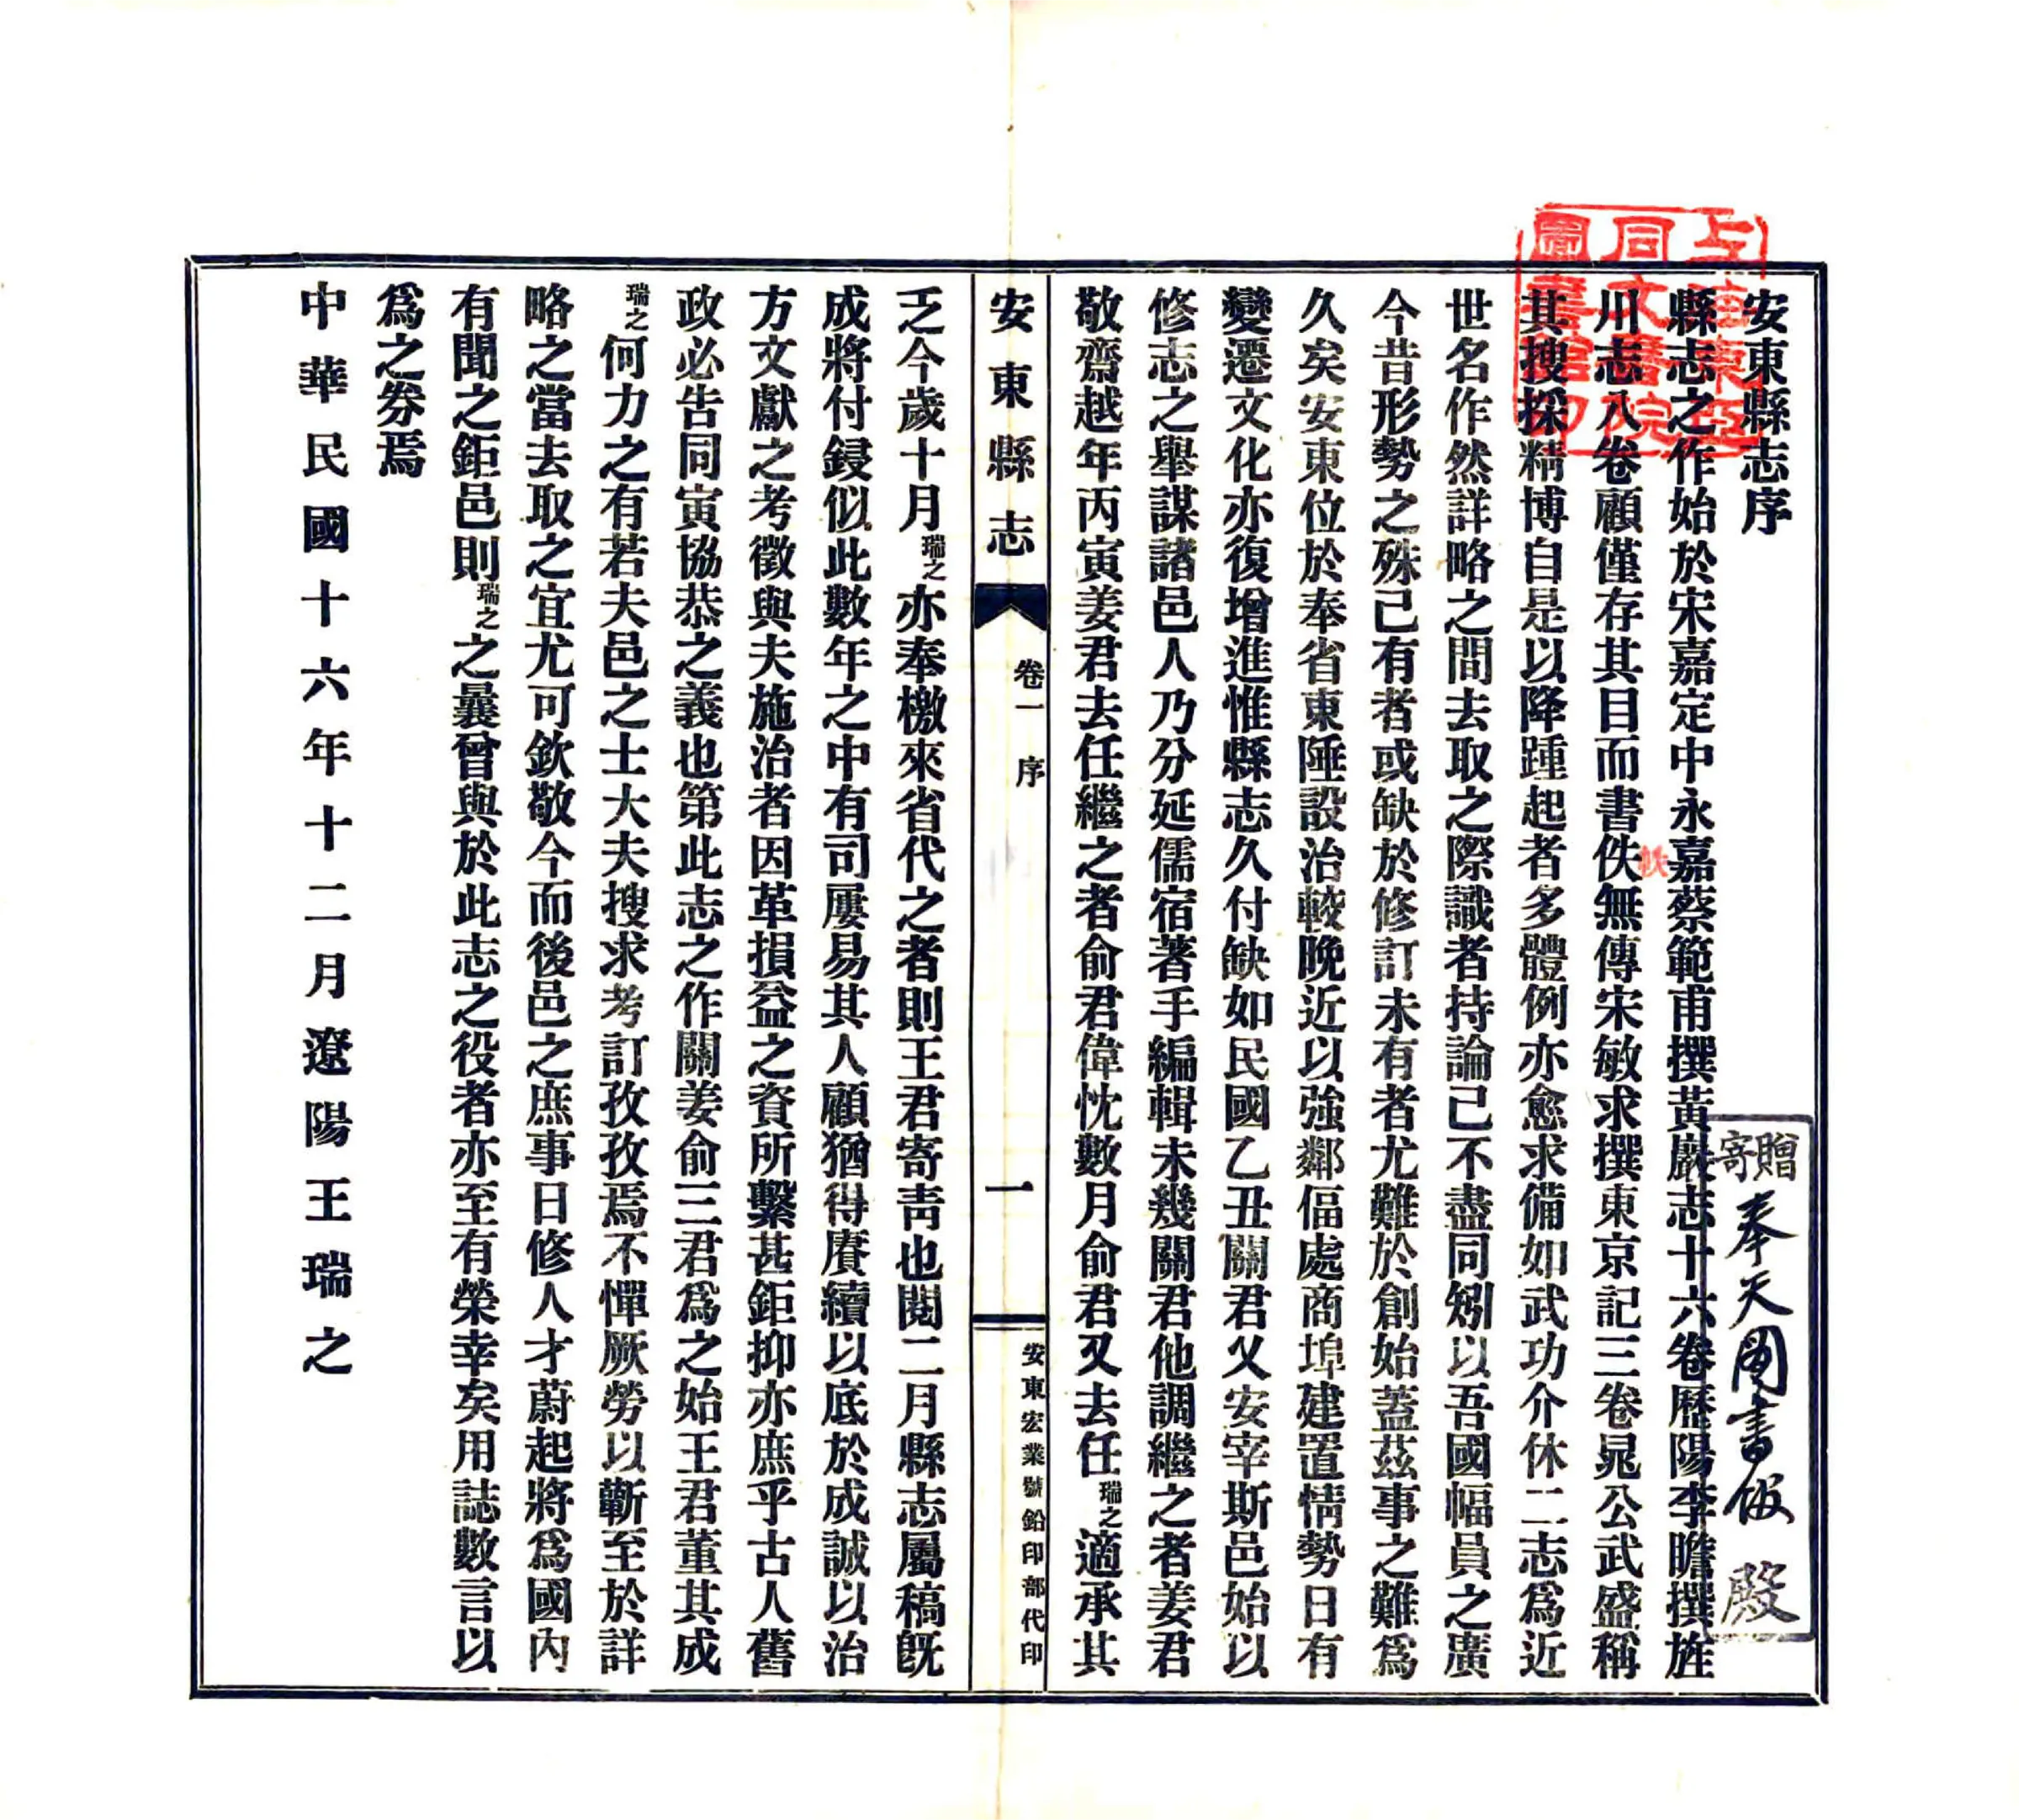 安東縣志序
縣志之作始於宋嘉定中永嘉蔡範甫撰黃巖志十六卷歷陽李瞻撰旌
川志八卷顧僅存其目而書佚無傳宋敏求撰東京記三卷晁公武盛稱
其搜採精博自是以降踵起者多體例亦愈求備如武功介休二志爲近
世名作然詳略之間去取之際識者持論己不盡同矧以吾國幅員之廣
今昔形勢之殊己有者或缺於修訂未有者尤難於創始蓋茲事之難爲
久矣安東位於奉省東陲設治較晚近以強鄰偪處商埠建置情勢日有
變遷文化亦復增進惟縣志久付缺如民國乙丑關君父安宰斯邑始以
修志之舉謀諸邑人乃分延儒宿著手編輯未幾關君他調繼之者姜君
敬齋越年丙寅姜君去任繼之者俞君偉忱數月俞君又去任瑞之適承其
安東縣志
卷一 序
一
安東宏業號鉛印部代印
乏今歲十月瑞之亦奉檄來省代之者則王君寄靑也閱二月縣志屬稿旣
成將付鋟似此數年之中有司屢易其人顧猶得賡續以底於成誠以治
方文獻之考徵與夫施治者因革損益之資所繫甚鉅抑亦庶乎古人舊
政必告同寅協恭之義也第此志之作關姜俞三君爲之始王君董其成
瑞之何力之有若夫邑之士大夫搜求考訂孜孜焉不憚厥勞以蘄至於詳
略之當去取之宜尤可欽敬今而後邑之庶事日修人才蔚起將爲國內
有聞之鉅邑則瑞之之曩曾與於此志之役者亦至有榮幸矣用誌數言以
爲之券焉
中華民國十六年十二月遼陽王瑞之
上海東亞
同文書院
圖書館印
軼
寄贈
奉天圖書館 殿